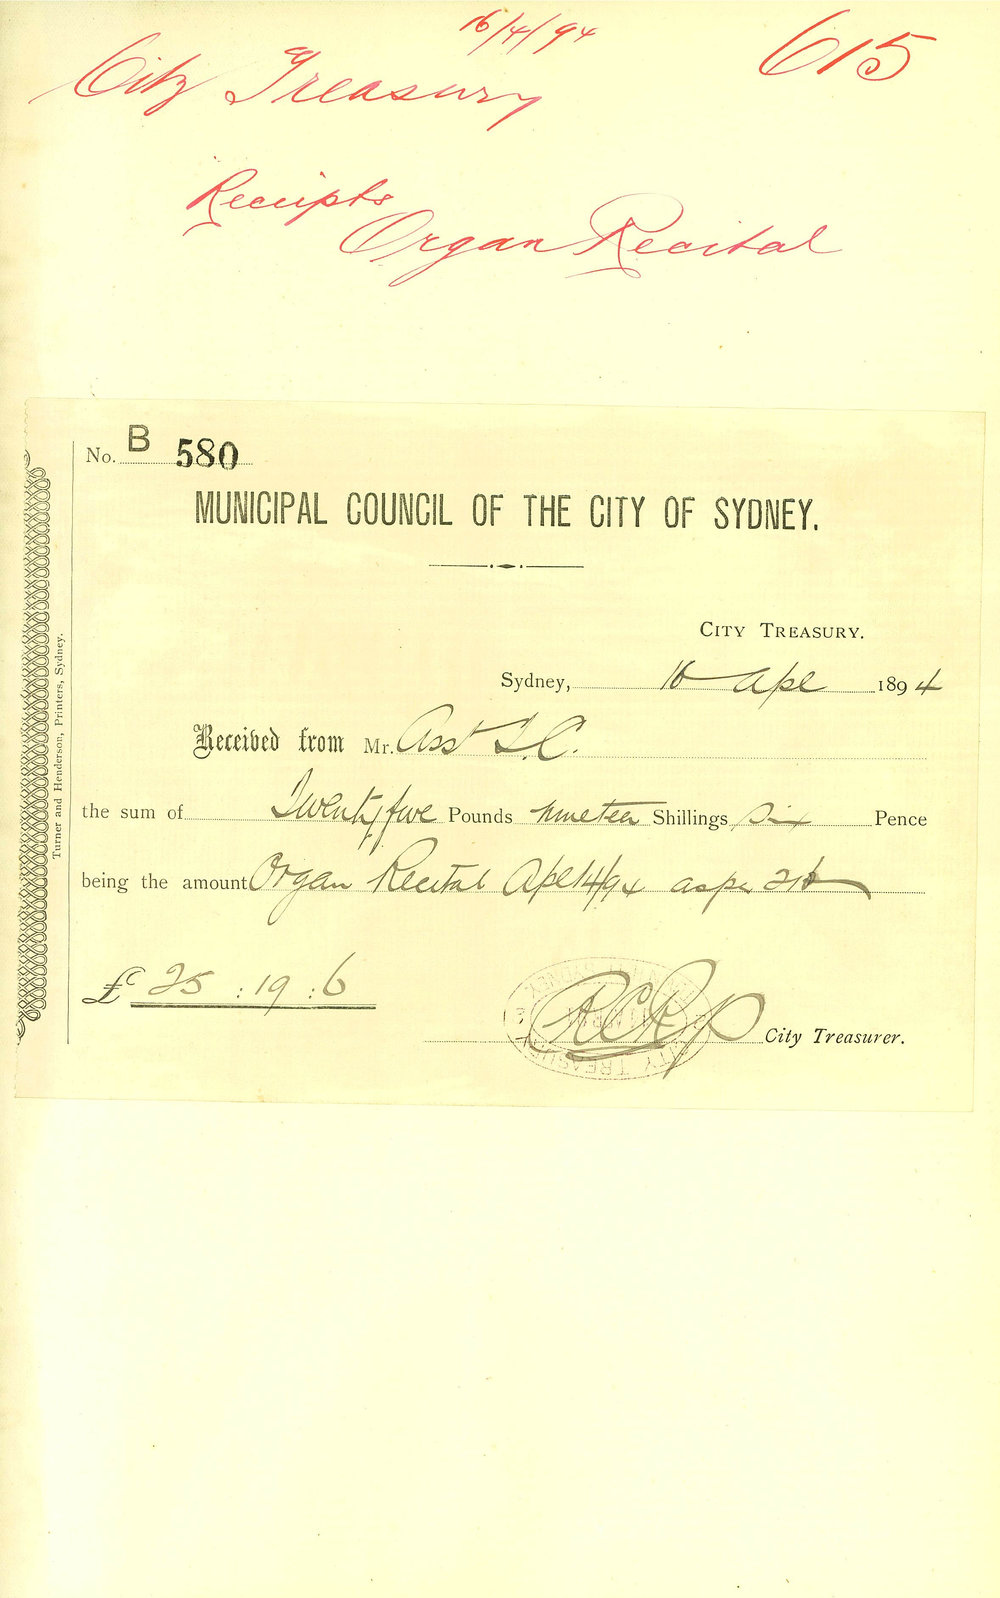 16/4/94
615
City Treasury
Receipts
Organ Recital
No. B 580
MUNICIPAL COUNCIL OF THE CITY OF SYDNEY.
CITY TREASURY.
Sydney, 16 Apl 1894
Received from Mr. Asst T.C.
the sum of Twenty five Pounds nineteen Shillings Six Pence
being the amount Organ Recital Apl 14/94 as per
£ 25 : 19 : 6
City Treasurer.
CITY TREASURY
Turner and Henderson, Printers, Sydney.